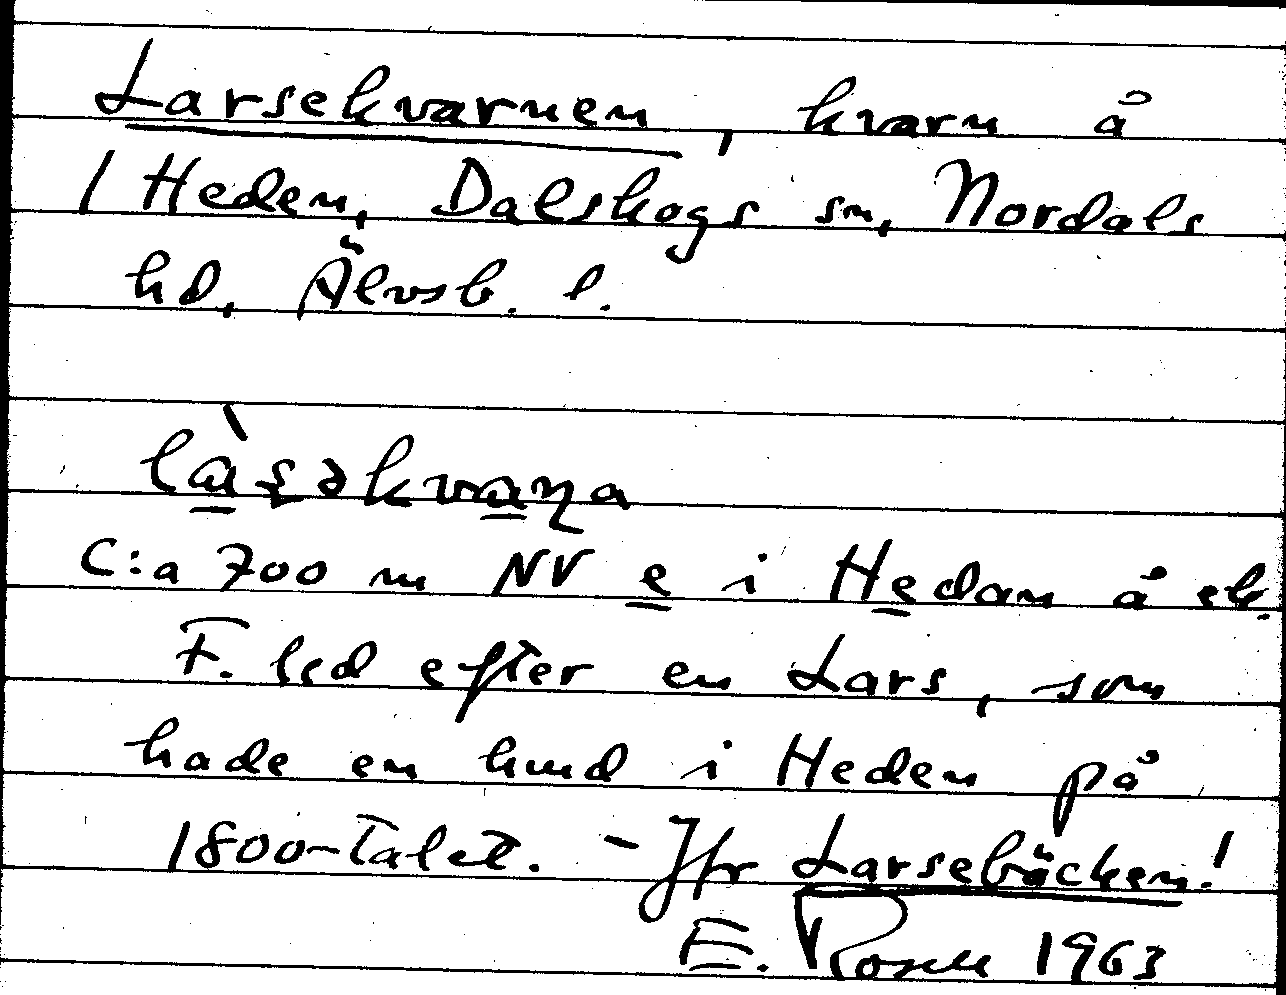 Larsekvarnen, kvarn å
1 Heden, Dalskogs sn, Nordals
hd, Älvsb. l.
là̱şəkva̱ɳa
C:a 700 m NV e̱ i He̱dan å ek.
F. led efter en Lars, som
hade en hmd i Heden på
1800-talet. - Jfr Larsebäcken!
E. Rosell 1963